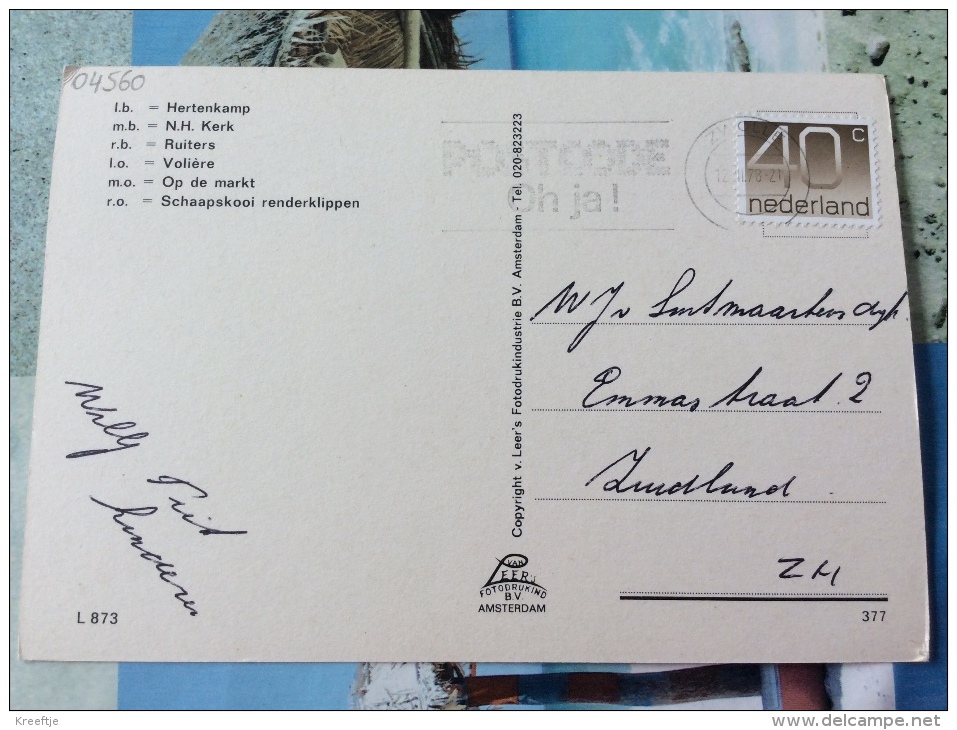 04560
l.b. = Hertenkamp
m.b. = N.H. Kerk
r.b. = Ruiters
l.o. = Volière
m.o. = Op de markt
r.o. = Schaapskooi renderklippen
POSTCODE
Oh ja!
40 c
nederland
Copyright v. Leer's Fotodrukindustrie B.V. Amsterdam - Tel. 020-823223
W J v
Emmastraat 2
Zuidland
ZH
Willy
VAN
LEER'S
FOTODRUKIND
B.V.
AMSTERDAM
L 873
377
Kreeftje
www.delcampe.net